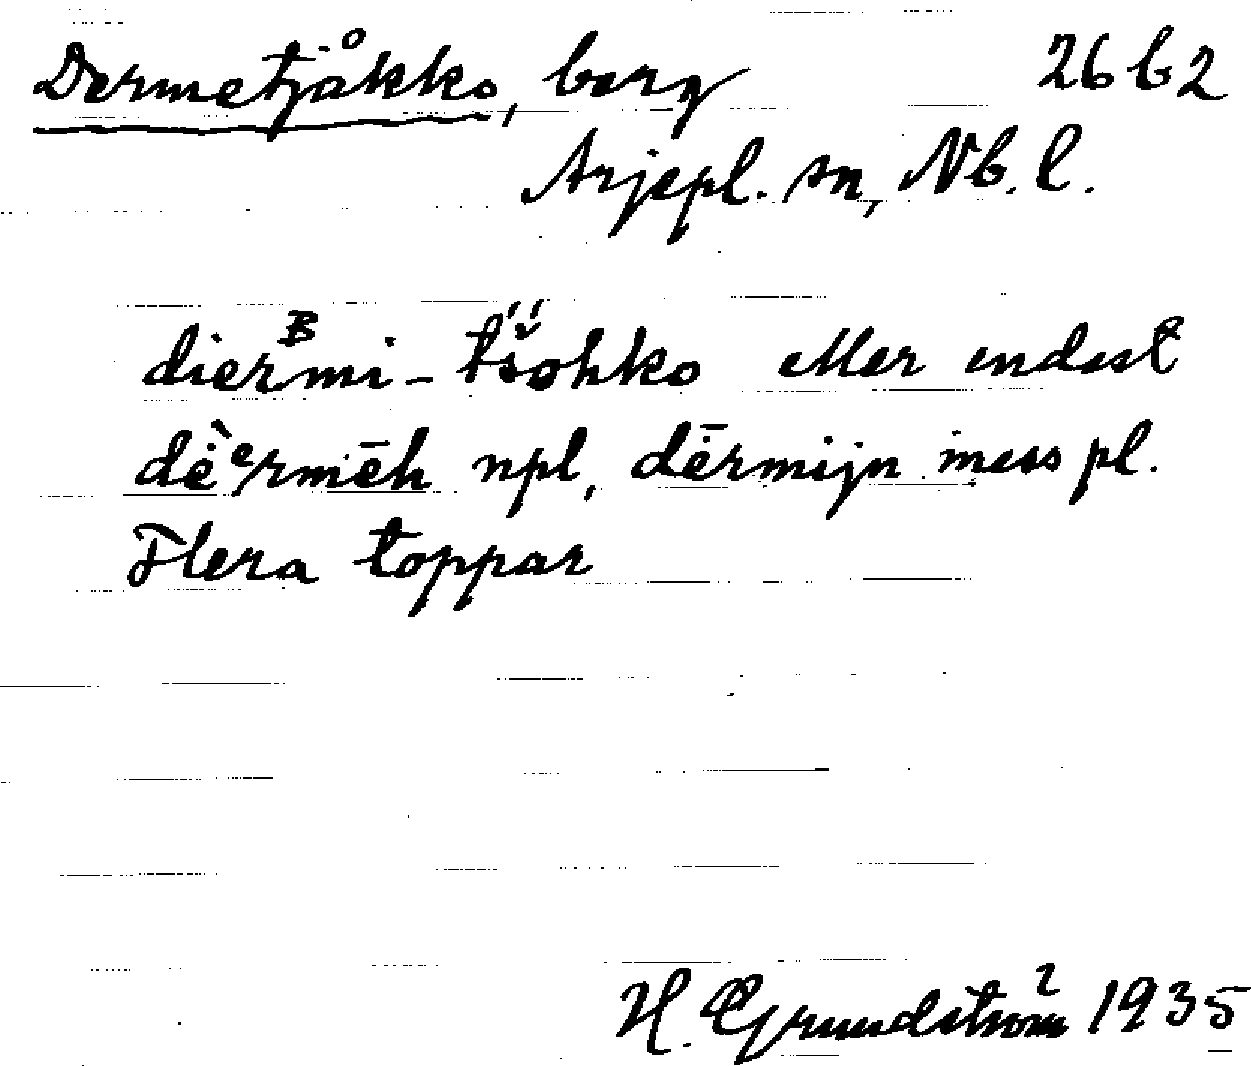 Dermetjåkko, berg 26 b 2
Arjepl. sn, Nb. l.
dierᴮmi-tšohko eller endast
dėˋᵉrmēh npl, dė̄rmijn iness pl.
Flera toppar
H. Grundström 1935